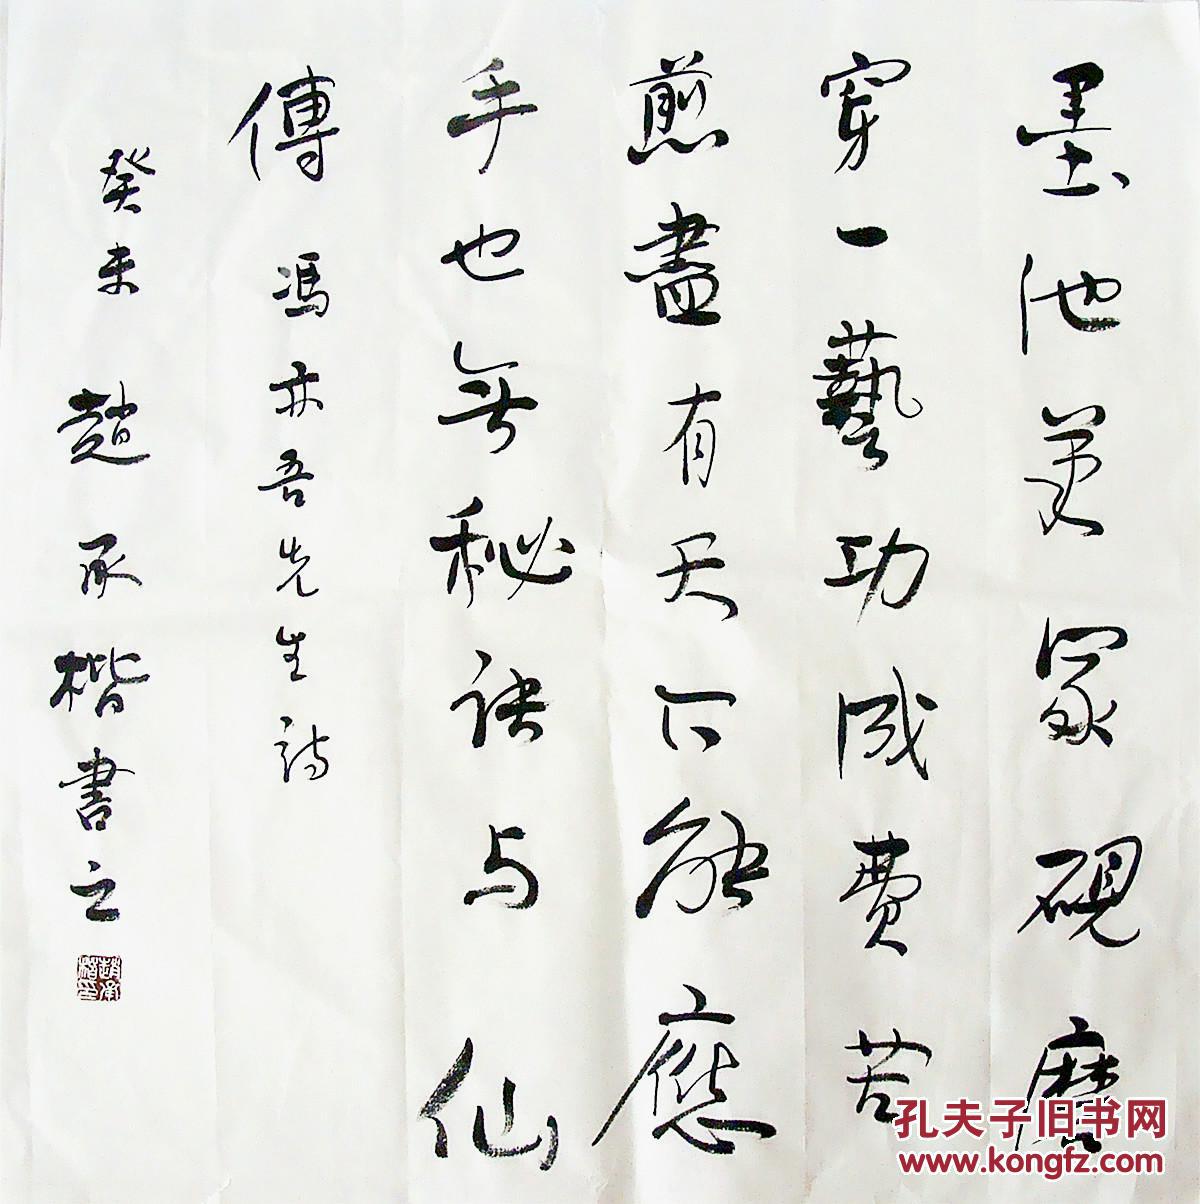 墨池笔冢砚磨
穿一藝功成費苦
煎盡有天下能應
手也無秘訣与仙
傳 馮亦吾先生詩
癸未 趙承楷書之
趙承楷印
孔夫子旧书网
www.kongfz.com